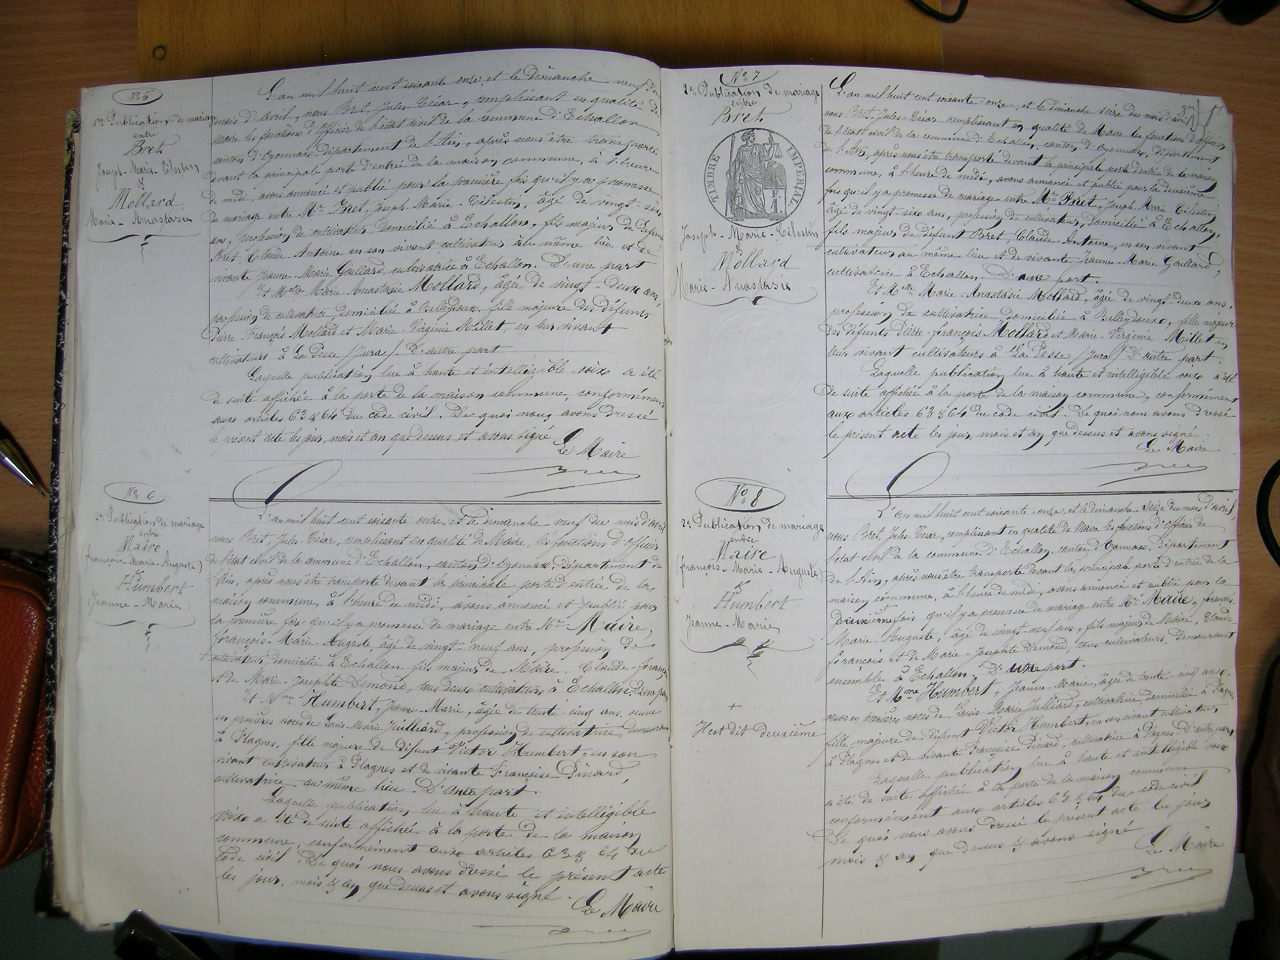 No 5
1re Publication de mariage
entre
Bret
Joseph-Marie-Célestin
et
Mollard
Marie-Anastasie
L'an mil huit cent soixante onze et le dimanche neuf du
mois d'Avril, nous Bret, Jules César, remplissant en qualité de
Maire les fonctions d'officier de l'état civil de la commune d'Echallon
canton d'Oyonnax département de l'Ain, après nous être transporté
devant la principale porte d'entrée de la maison commune, à l'heure
de midi, avons annoncé et publié pour la première fois qu'il y a promesse
de mariage entre Mr Bret, Joseph Marie Célestin, âgé de vingt-six
ans, profession de cultivateur, domicilié à Echallon, fils majeur de défunt
Bret Claude Antoine en son vivant cultivateur au même lieu et de
vivante Jeanne Marie Gaillard, cultivatrice à Echallon. D'une part
Et Melle Marie Anastasie Mollard, âgée de vingt-deux ans,
profession de cultivatrice domiciliée à Belleydoux, fille majeure des défunts
Pierre François Mollard et Marie Virginie Millet en leur vivant
cultivateurs à La Pesse /Jura/ D'autre part
Laquelle publication, lue à haute et intelligible voix a été
de suite affichée à la porte de la maison commune, conformément
aux articles 63 & 64 du code civil. De quoi nous avons dressé
le présent acte les jour, mois et an que dessus et avons signé
Le Maire
Bret
No 6
1re Publication de mariage
entre
Maire
François-Marie-Auguste
et
Humbert
Jeanne-Marie
L'an mil huit cent soixante onze, et le dimanche neuf du mois d'avril
nous Bret, Jules César, remplissant en qualité de Maire, les fonctions d'officier
de l'état civil de la commune d'Echallon, canton d'Oyonnax département de
l'Ain, après nous être transporté devant la principale porte d'entrée de la
maison commune, à l'heure de midi, avons annoncé et publié pour
la première fois qu'il y a promesse de mariage entre Mr Maire,
François-Marie Auguste, âgé de vingt-neuf ans, profession de
cultivateur domicilié à Echallon fils majeur de Maire, Claude-François
et de Marie-Josephte Demond, tous deux cultivateurs à Echallon, D'une part
Et Mme Humbert, Jeanne-Marie, âgée de trente cinq ans, veuve
en premières noces de Louis Marie Juilliard, profession de cultivatrice, demeurant
à Plagnes, fille majeure de défunt Victor Humbert en son
vivant cultivateur à Plagnes et de vivante Françoise Durard,
cultivatrice au même lieu. D'autre part.
Laquelle publication, lue à haute et intelligible
voix a été de suite affichée à la porte de la maison
commune, conformément aux articles 63 & 64 du
Code civil. De quoi nous avons dressé le présent acte
les jour, mois & an que dessus et avons signé.
Le Maire
Bret
No 7
2e Publication de mariage
entre
Bret
TIMBRE IMPERIAL
Joseph-Marie-Célestin
&
Mollard
Marie-Anastasie
L'an mil huit cent soixante onze, et le dimanche seize du mois d'avril
nous Bret Jules César remplissant en qualité de Maire les fonctions d'officier
de l'état civil de la commune d'Echallon, canton d'Oyonnax, département
de l'Ain, après nous être transporté devant la principale porte d'entrée de la maison
commune, à l'heure de midi, avons annoncé et publié pour la deuxième
fois qu'il y a promesse de mariage entre Mr Bret, Joseph Marie Célestin,
âgé de vingt-six ans, profession de cultivateur, domicilié à Echallon,
fils majeur de défunt Bret, Claude Antoine, en son vivant
cultivateur au même lieu et de vivante Jeanne Marie Gaillard,
cultivatrice à Echallon. D'une part.
Et Melle Marie-Anastasie Mollard, âgée de vingt-deux ans,
profession de cultivatrice domiciliée à Belleydoux, fille majeure
des défunts Pierre-François Mollard et Marie-Virginie Millet en
leur vivant cultivateurs à La Pesse /Jura/ D'autre part.
Laquelle publication, lue à haute et intelligible voix a été
de suite affichée à la porte de la maison commune, conformément
aux articles 63 & 64 du code civil. De quoi nous avons dressé
le présent acte les jour, mois et an que dessus et avons signé
Le Maire
Bret
No 8
2e Publication de mariage
entre
Maire
François-Marie-Auguste
et
Humbert
Jeanne-Marie
+
Il est dit deuxième
L'an mil huit cent soixante-onze et le dimanche seize du mois d'avril,
nous Bret, Jules César, remplissant en qualité de Maire les fonctions d'officier de
l'état civil de la commune d'Echallon, canton d'Oyonnax, département
de l'Ain, après nous être transporté devant la principale porte d'entrée de la
maison commune, à l'heure de midi, avons annoncé et publié pour la
Deuxième fois qu'il y a promesse de mariage entre Mr Maire, François
Marie Auguste, âgé de vingt-neuf ans, fils majeur de Maire, Claude
François et de Marie-Josephte Demond, tous cultivateurs demeurant
ensemble à Echallon, D'une part.
Et Mme Humbert, Jeanne-Marie, âgée de trente cinq ans,
veuve en premières noces de Louis Marie Juilliard, cultivatrice domiciliée à Plagnes
fille majeure de défunt Victor Humbert en son vivant cultivateur
à Plagnes et de vivante Françoise Durard, cultivatrice à Plagnes D'autre part,
Laquelle publication, lue à haute et intelligible voix
a été de suite affichée à la porte de la maison commune
conformément aux articles 63 & 64 du code civil
De quoi nous avons dressé le présent acte les jour
mois & an que dessus & avons signé
Le Maire
Bret